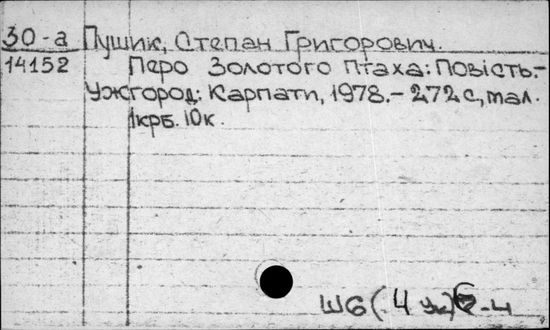 30-а Пушик, Степан Григорович.
14152 Перо Золотого Птаха: Повість.-
Ужгород: Карпати, 1978.- 272 с, мал.
1крб. 10к.
Ш6(4 Ук)